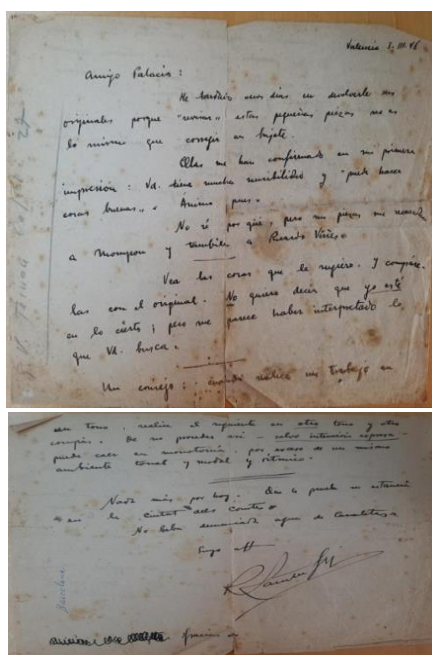 Valencia 3. III. 46
Amigo Palacio:
He tardado unos días en devolverle sus
originales porque "revisar" estas pequeñas piezas no es
lo mismo que corregir un bajete.
Ellas me han confirmado en mi primera
impresión: Vd. tiene mucha sensibilidad y "puede hacer
cosas buenas". Animo pues.
No sé por qué, pero sus piezas me
a Mompou y también a Ricardo Viñes.
Vea las cosas que le sugiero. Y compáre-
las con el original. No quiero decir que yo esté
en lo cierto; pero me parece haber interpretado lo
que Vd. busca.
Un consejo: cuando realice un trabajo en
un tono, realice el siguiente en otro tono y otro
compás. De no proceder así - salvo intención expresa -
puede caer en monotonía, por exceso de un mismo
ambiente tonal y modal y rítmico.
Nada más por hoy. Que le pruebe su estancia
en la ciutat dels comtes
No beba demasiada agua de Canaletas
Suyo aff
Barcelona
gracias